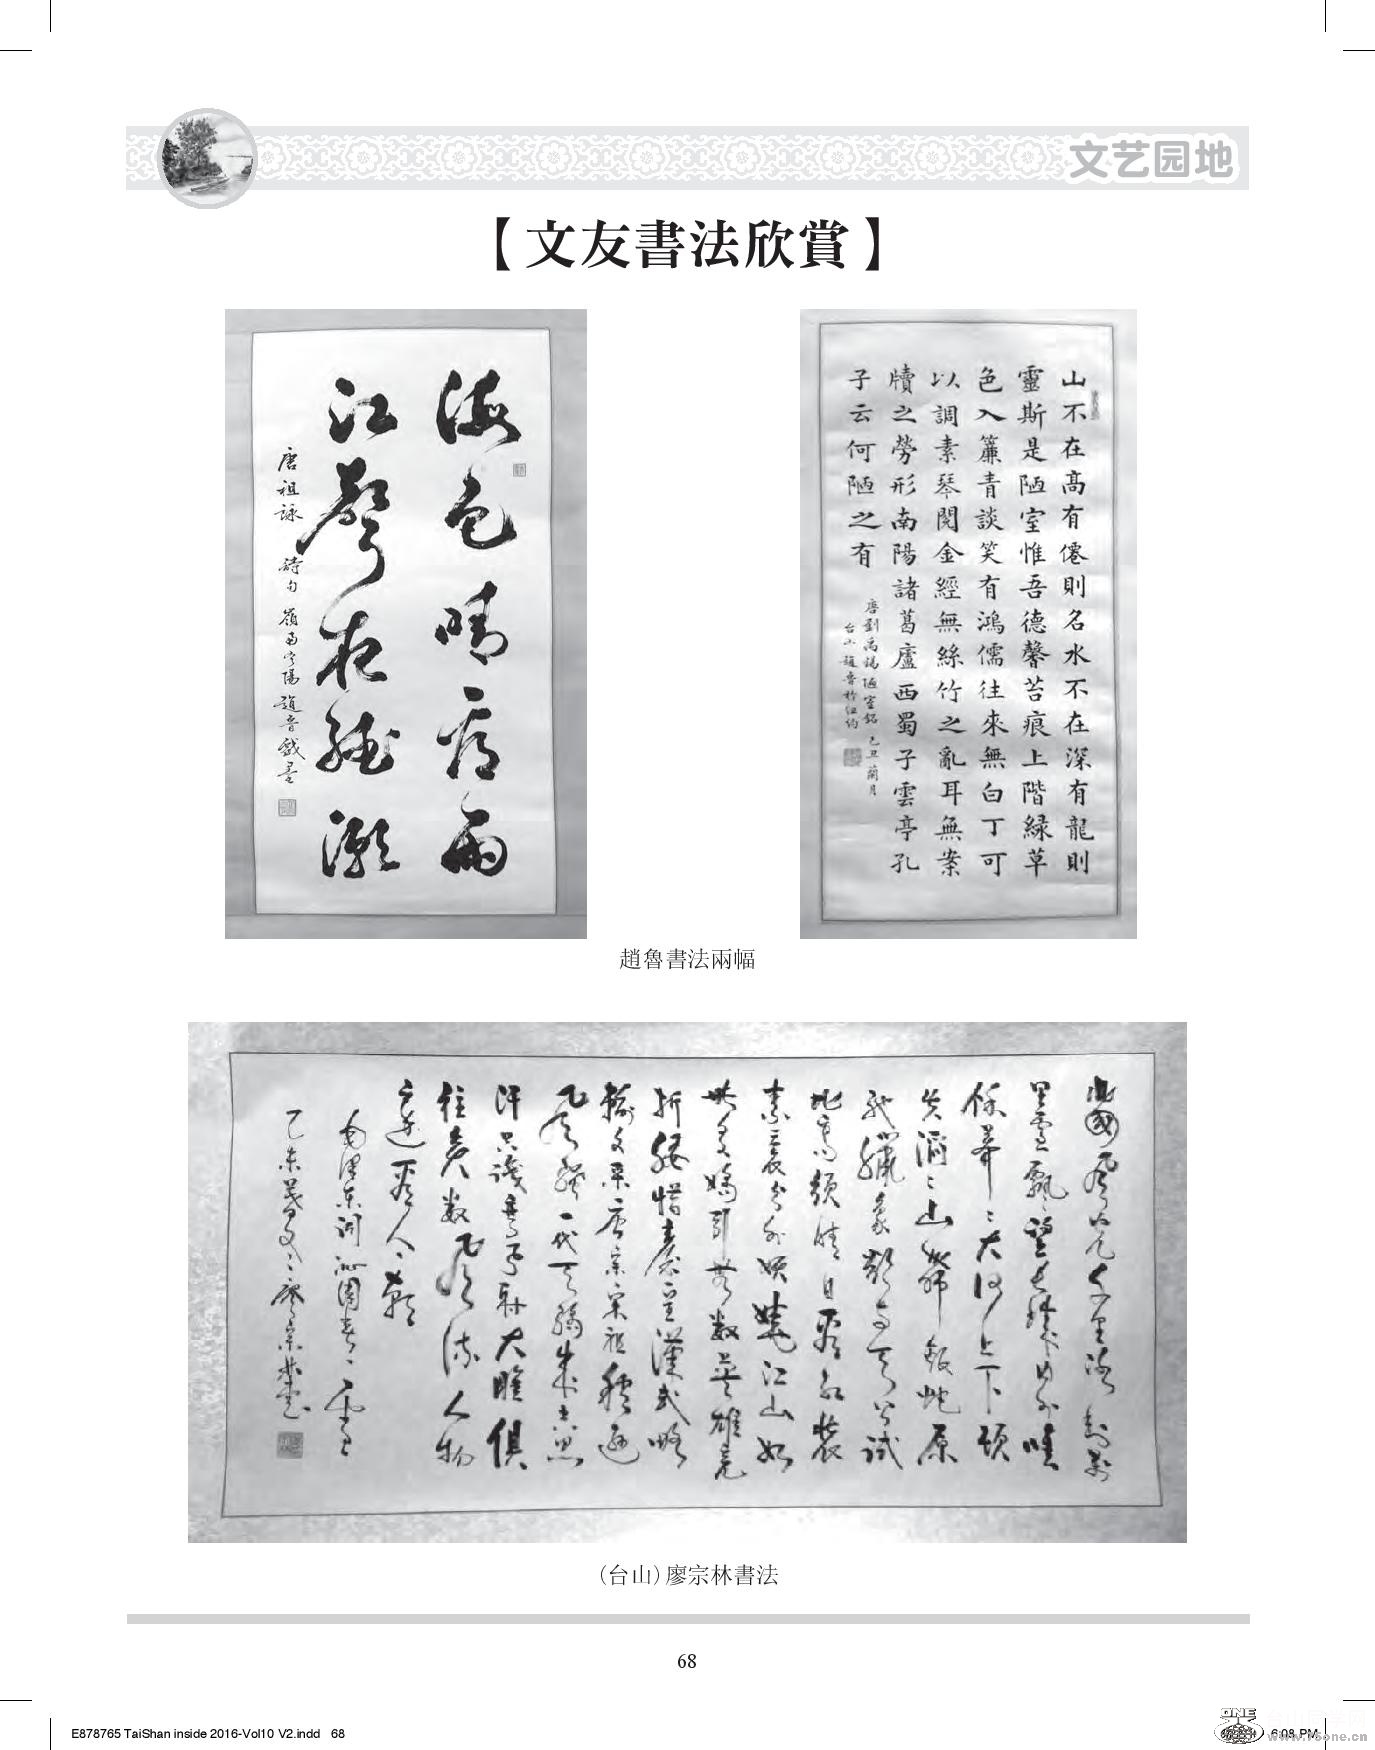 文艺园地
【文友書法欣賞】
海色晴看雨
江聲夜聽潮
唐祖詠 詩句 嶺南寧陽趙魯戲墨
山不在高有僊則名水不在深有龍則
靈斯是陋室惟吾德馨苔痕上階緑草
色入簾青談笑有鴻儒往來無白丁可
以調素琴閲金經無絲竹之亂耳無案
牘之勞形南陽諸葛廬西蜀子雲亭孔
子云何陋之有
唐劉禹錫陋室銘 己丑蘭月
台山趙魯於紐約
趙魯書法兩幅
北國風光千里冰封萬
里雪飄望長城内外惟
餘莽〻大河上下頓
失滔〻山舞銀蛇原
馳蠟象欲與天公試
比高須晴日看紅裝
素裹分外妖嬈江山如
此多嬌引無數英雄竞
折腰惜秦皇漢武略
輸文采唐宗宋祖稍遜
風騷一代天驕成吉思
汗只識彎弓射大雕俱
往矣数風流人物
還看今朝
毛澤東詞沁園春雪
乙未
（台山）廖宗林書法
68
E878765 TaiShan inside 2016-Vol10 V2.indd 68
6:08 PM
ONE
www.75one.cn